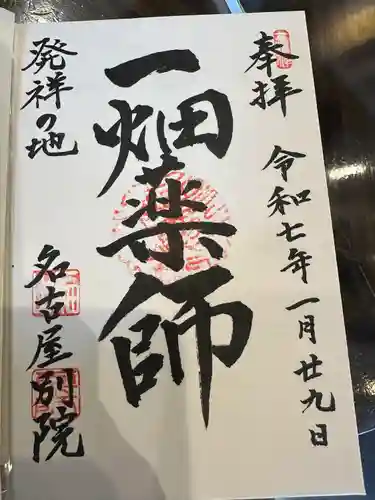 奉拝
令和七年一月廿九日
一畑薬師
発祥の地
名古屋別院